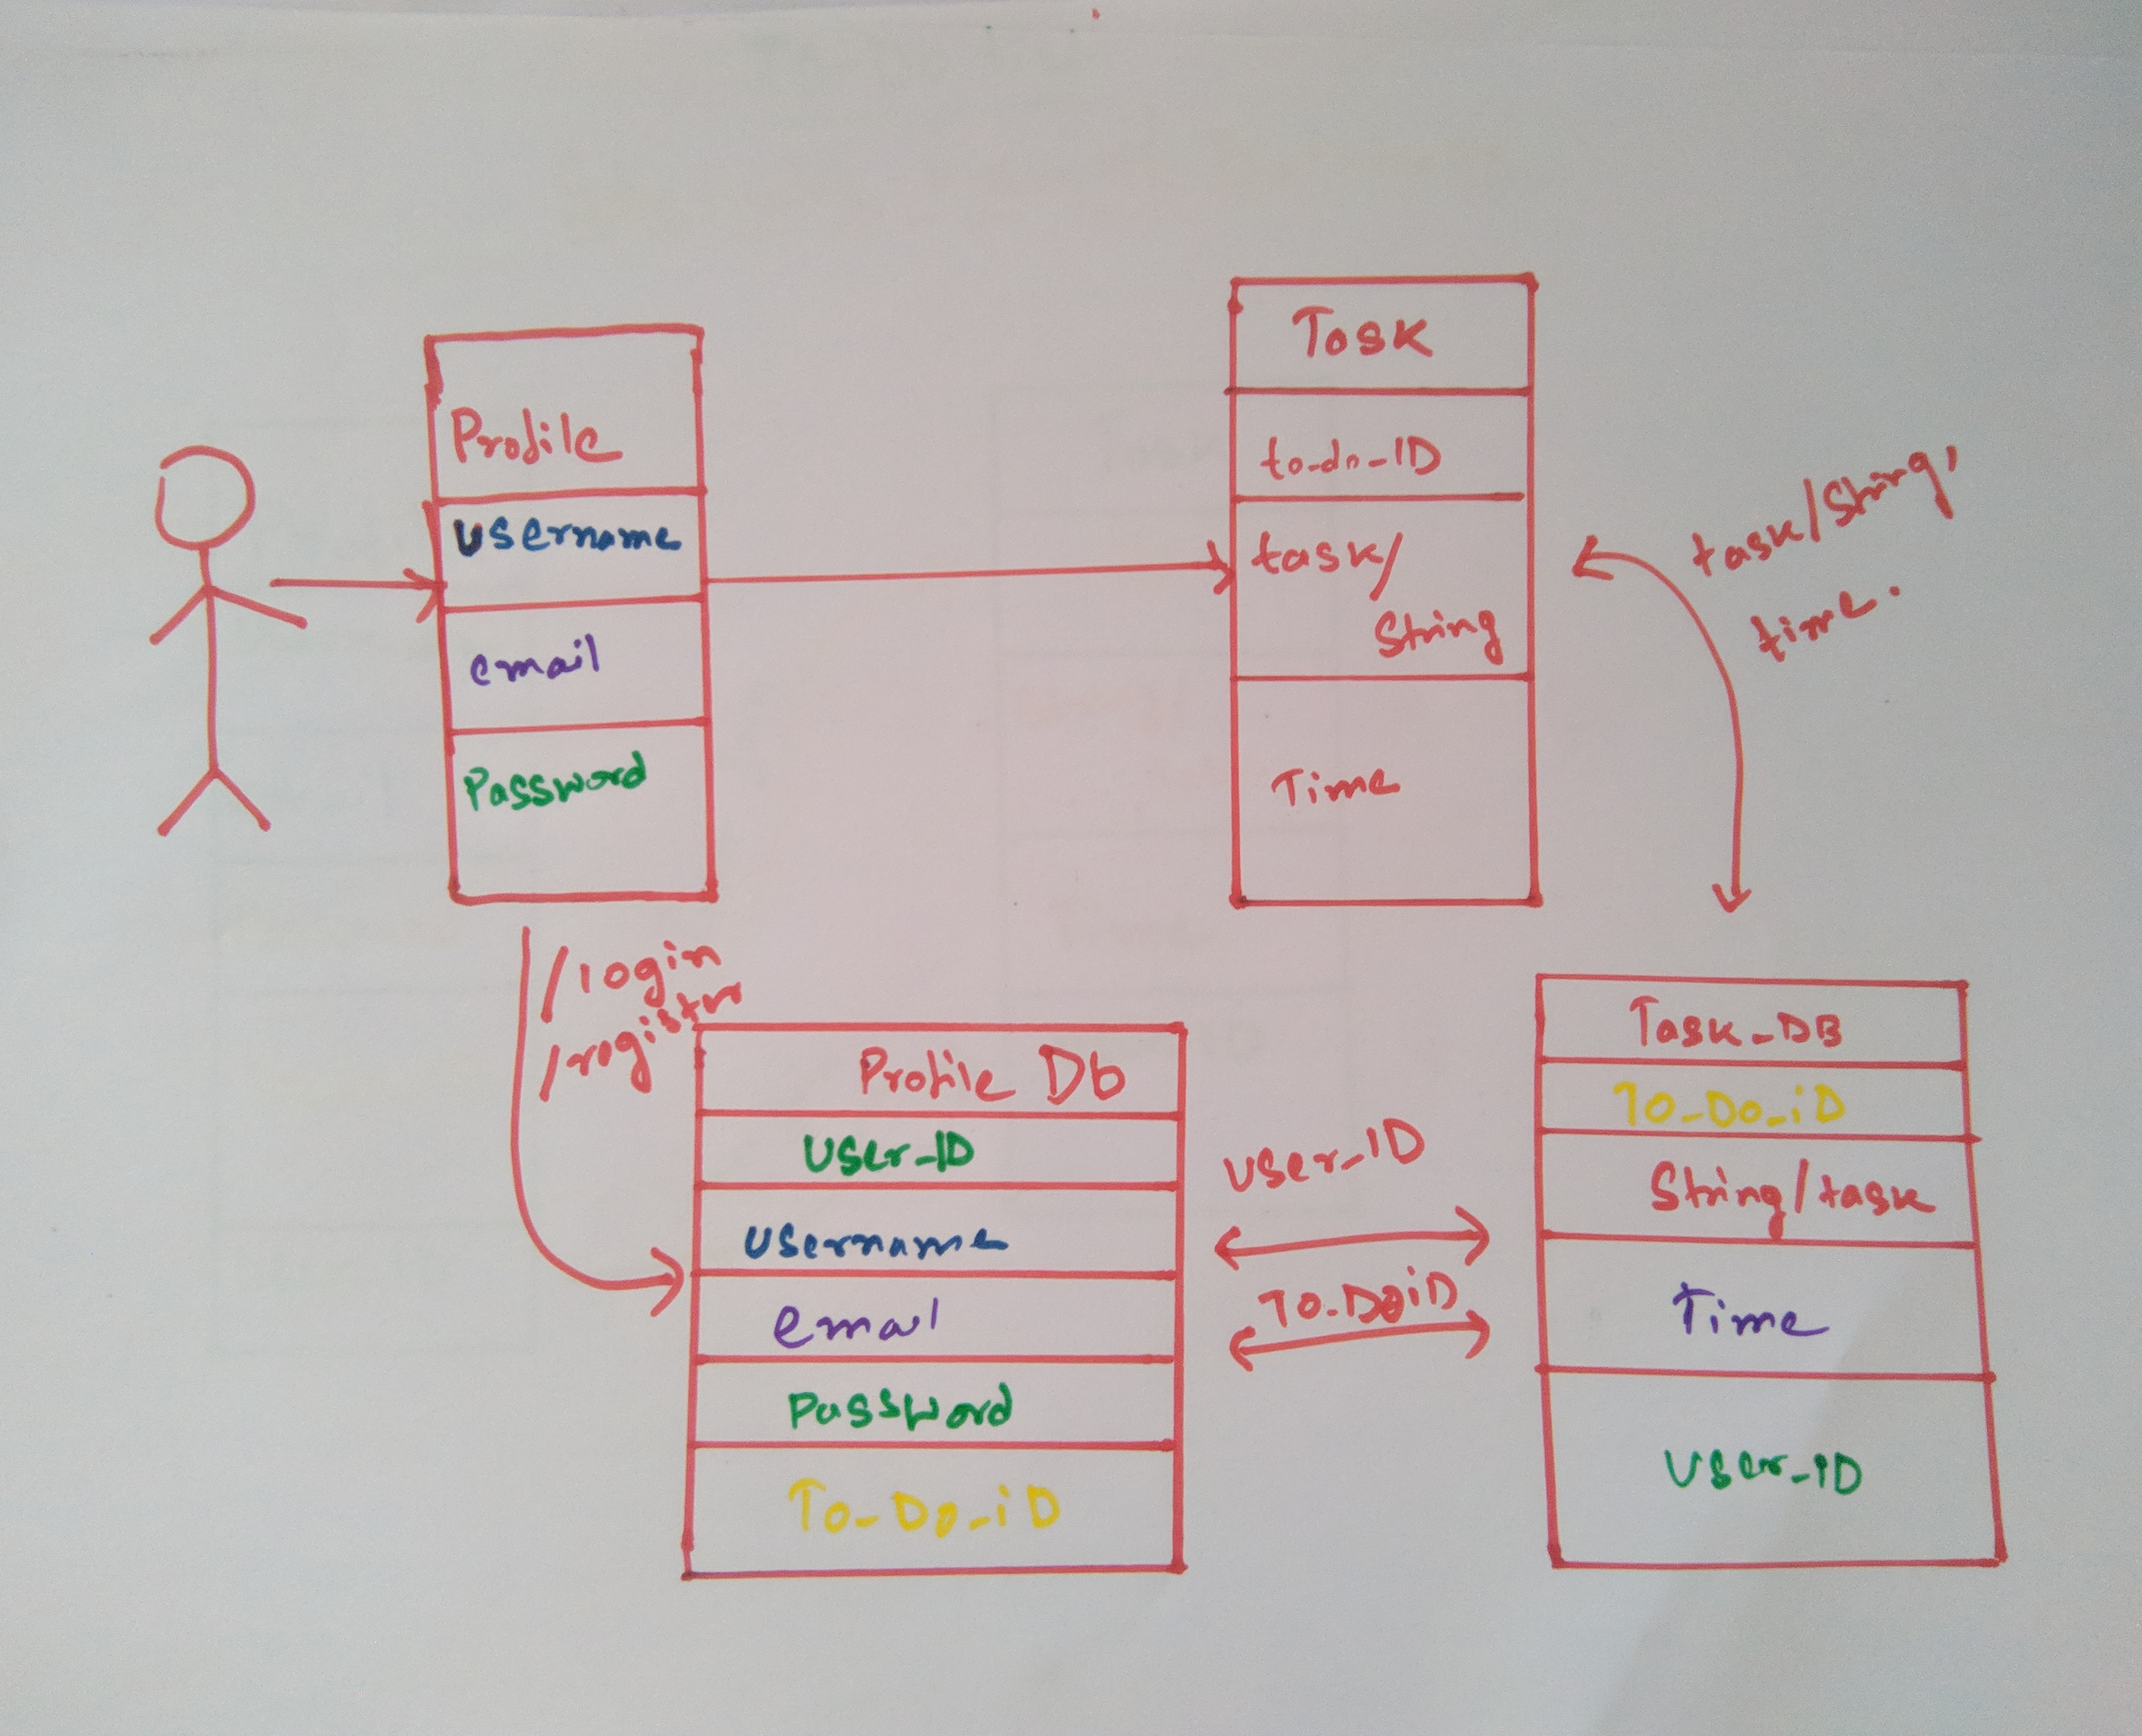 Profile
Username
email
Password
Task
to-do-ID
task/
String
Time
task/String,
time.
/login
/register
Profile Db
User-ID
Username
email
Password
To-Do-iD
User-ID
To-DoiD
Task-DB
To-Do-iD
String/task
Time
User-ID